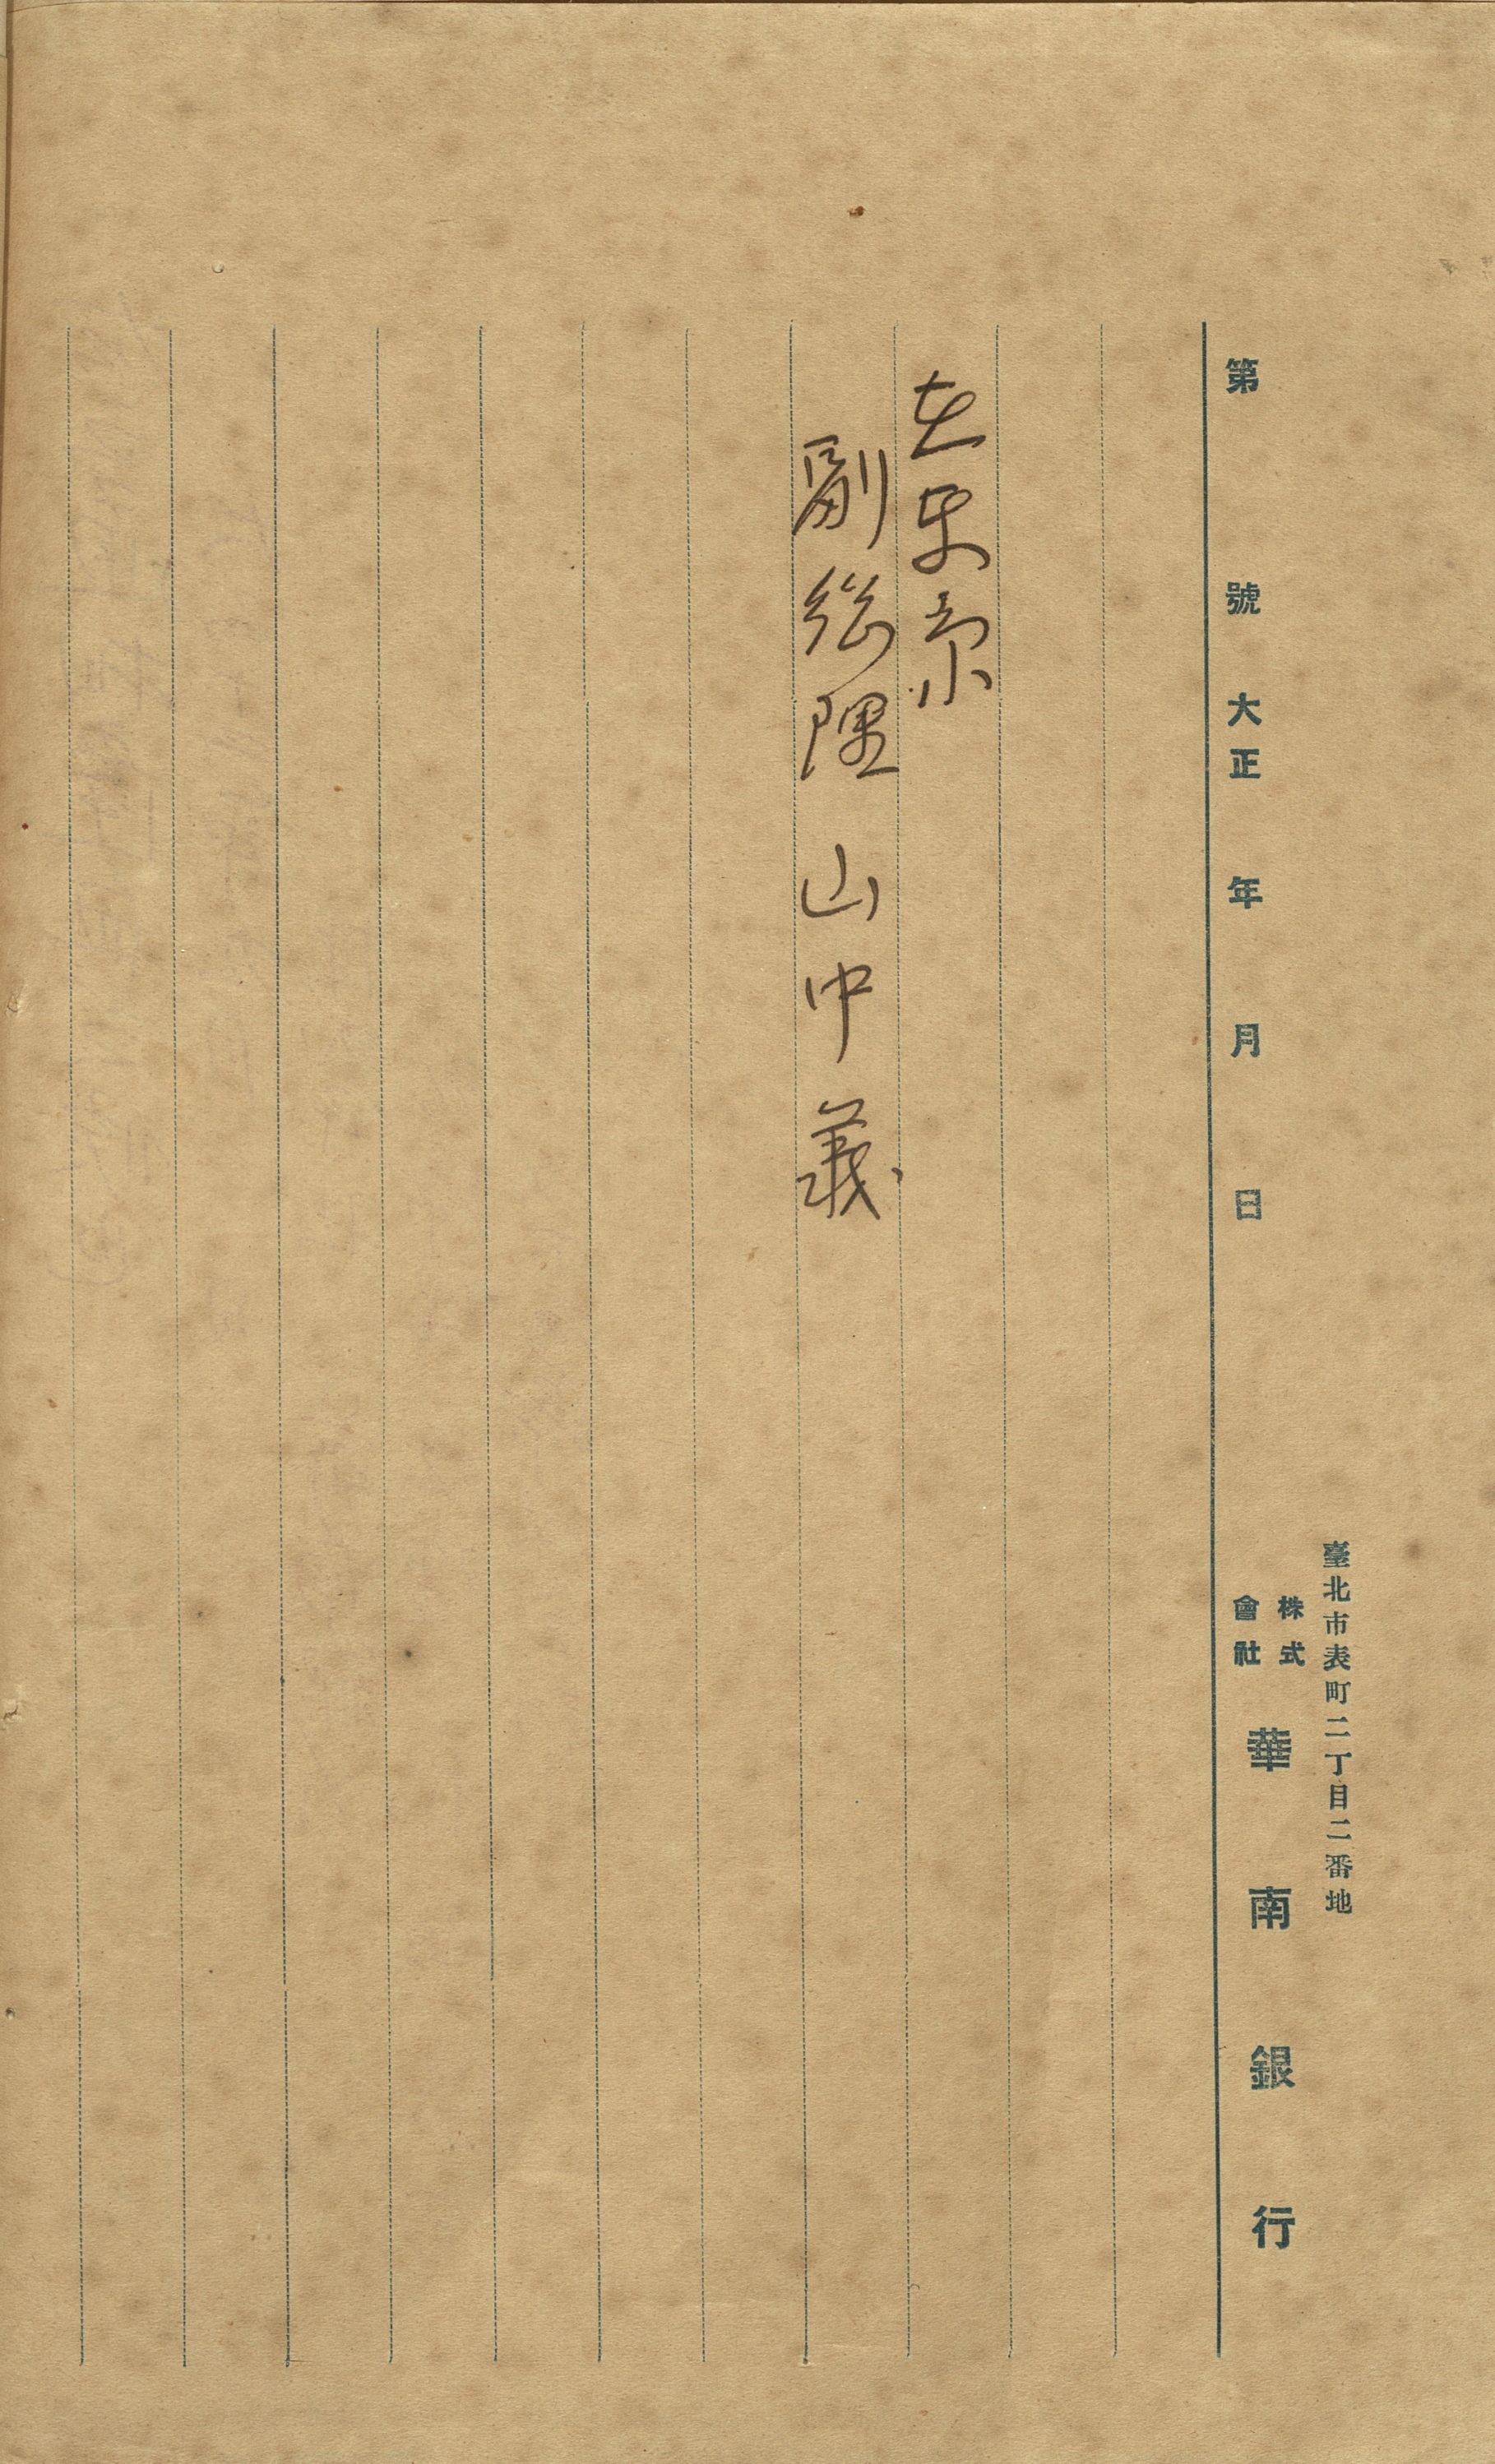 臺北市表町二丁目二番地
株式
會社
華南銀行
第 號 大正 年 月 日
在東京
副總理 山中義